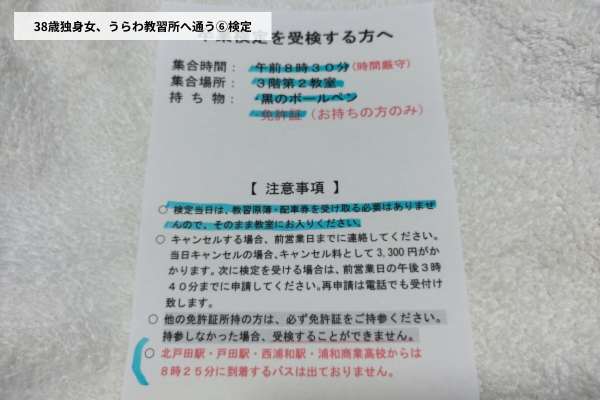 38歳独身女、うらわ教習所へ通う⑥検定
検定を受検する方へ
集合時間： 午前８時３０分(時間厳守)
集合場所： ３階第２教室
持 ち 物： ・黒のボールペン
・免許証（お持ちの方のみ）
【 注意事項 】
○ 検定当日は、教習原簿・配車券を受け取る必要はありませ
んので、そのまま教室にお入りください。
○ キャンセルする場合、前営業日までに連絡してください。
当日キャンセルの場合、キャンセル料として３,３００円がか
かります。次に検定を受ける場合は、前営業日の午後３時
４０分までに申請してください。再申請は電話でも受付け
致します。
○ 他の免許証所持の方は、必ず免許証をご持参ください。
持参しなかった場合、受検することができません。
○ 北戸田駅・戸田駅・西浦和駅・浦和商業高校からは
８時２５分に到着するバスは出ておりません。